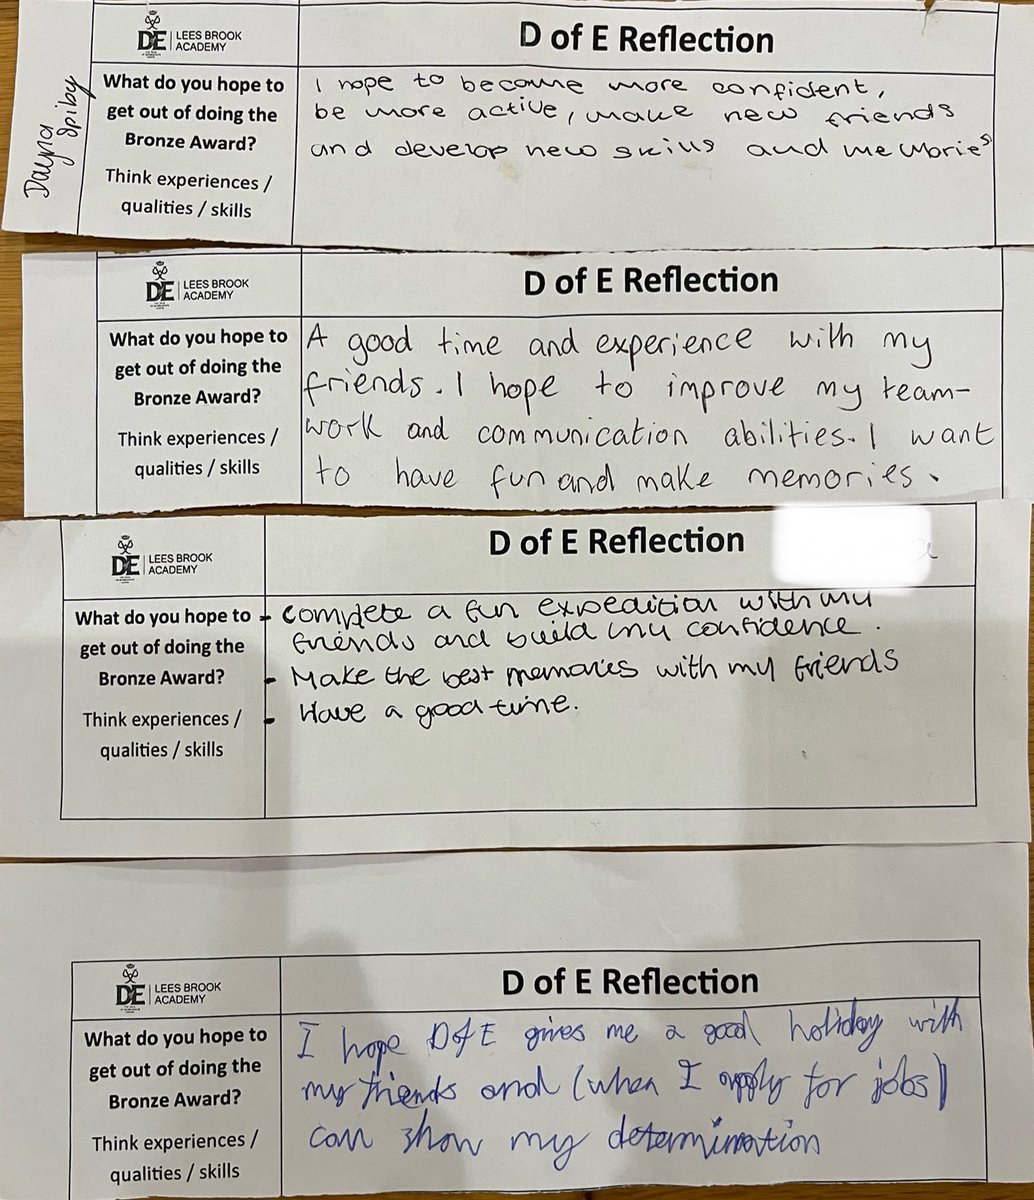 Dayna
Spiby
DE
LEES BROOK
ACADEMY
D of E Reflection
What do you hope to
get out of doing the
Bronze Award?
Think experiences /
qualities / skills
I hope to become more confident,
be more active, make new friends
and develop new skills and memories
DE
LEES BROOK
ACADEMY
D of E Reflection
What do you hope to
get out of doing the
Bronze Award?
Think experiences /
qualities / skills
A good time and experience with my
friends. I hope to improve my team-
work and communication abilities. I want
to have fun and make memories.
DE
LEES BROOK
ACADEMY
D of E Reflection
What do you hope to
get out of doing the
Bronze Award?
Think experiences /
qualities / skills
- Complete a fun expedition with my
friends and build my confidence.
- Make the best memories with my friends
- Have a good time.
DE
LEES BROOK
ACADEMY
D of E Reflection
What do you hope to
get out of doing the
Bronze Award?
Think experiences /
qualities / skills
I hope D of E gives me a good holiday with
my friends and (when I apply for jobs)
can show my determination